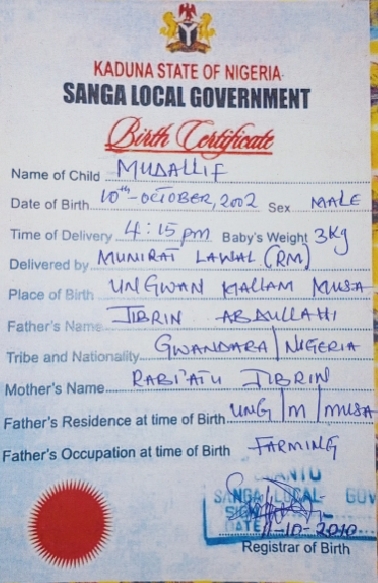 KADUNA STATE OF NIGERIA
SANGA LOCAL GOVERNMENT
Birth Certificate
Name of Child MUDALLIF
Date of Birth 10th-OCTOBER, 2002 Sex MALE
Time of Delivery 4:15pm Baby's Weight 3Kg
Delivered by MUNIRAT LAWAL (RM)
Place of Birth UNGWAN MALLAM MUSA
Father's Name JIBRIN ABDULLAHI
Tribe and Nationality GWANDARA/NIGERIA
Mother's Name RABI'ATU JIBRIN
Father's Residence at time of Birth UNG/M/MUSA
Father's Occupation at time of Birth FARMING
SANGA LOCAL GOV
DATE 11-10-2010
Registrar of Birth